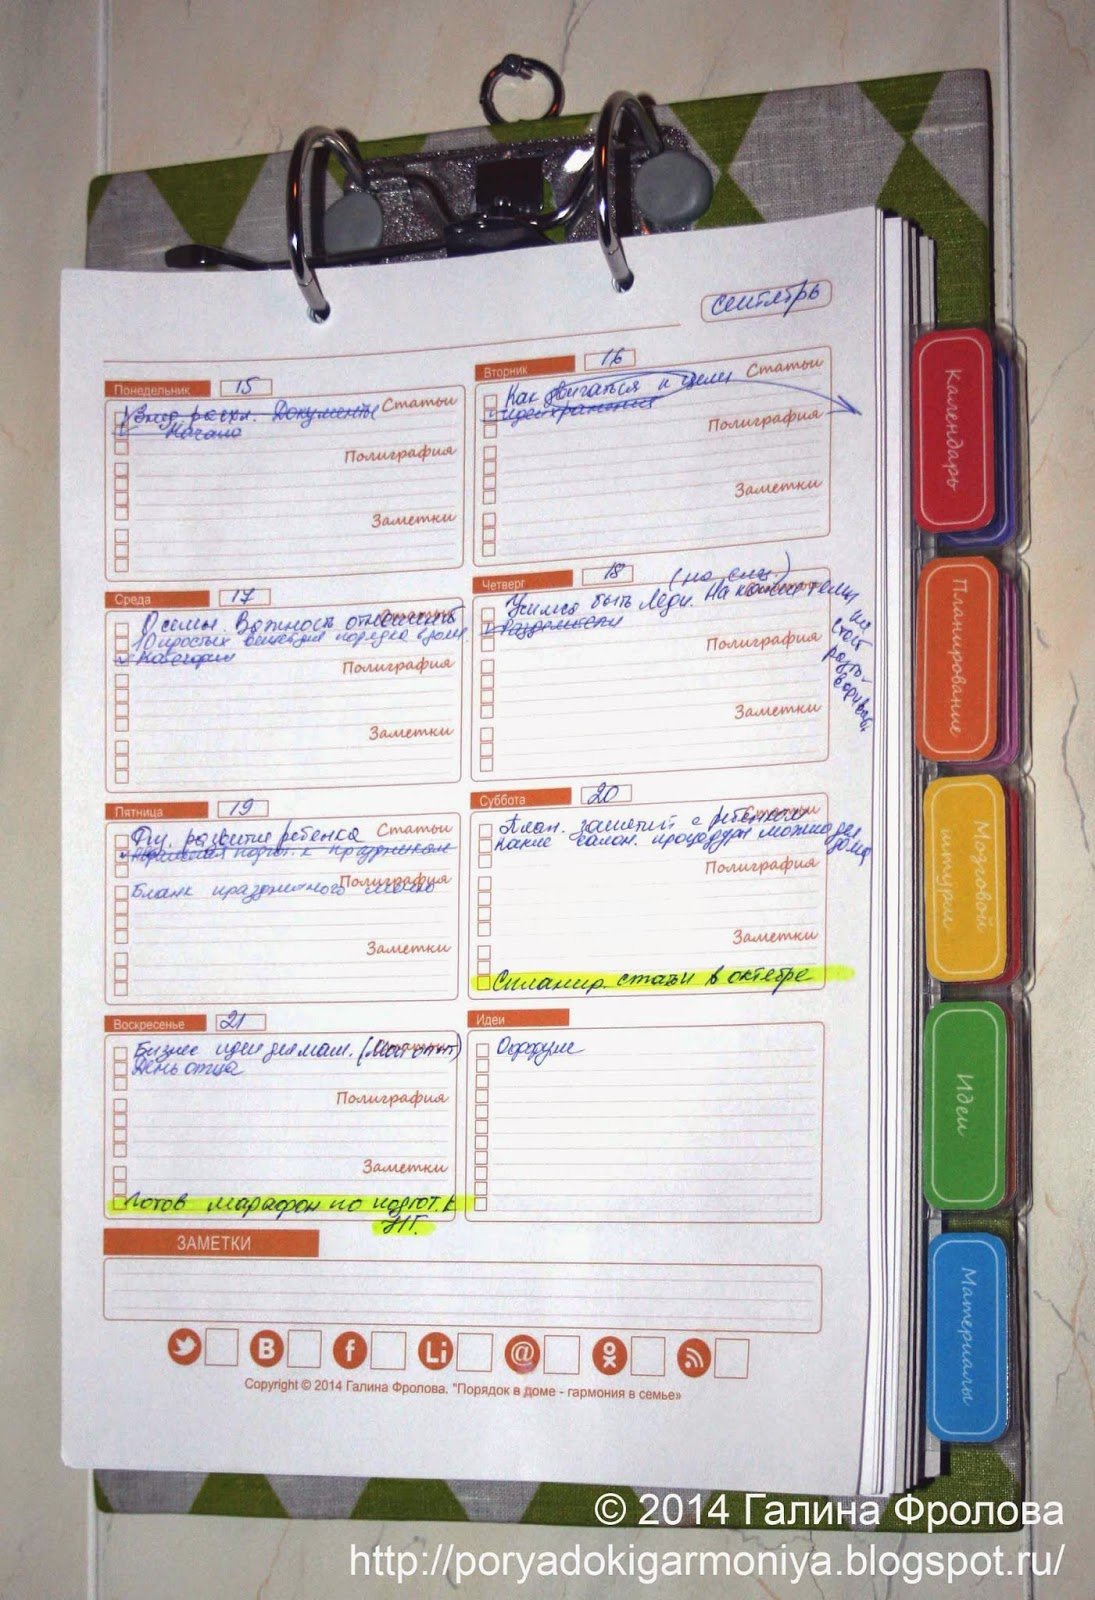 сентябрь
Понедельник 15
Статьи
Документы
Начало
Полиграфия
Заметки
Вторник 16
Статьи
Как двигаться к цели
Полиграфия
Заметки
Среда 17
Статьи
О семье. Важность отношений
10 простых порядка в доме.
Категории
Полиграфия
Заметки
Четверг 18
Статьи
Учимся быть Леди. На какие темы не
стоит
разго-
варивать
Полиграфия
Заметки
Пятница 19
Статьи
развития ребенка
подгот. к праздникам
Полиграфия
Бланк праздничного меню
Заметки
Суббота 20
Статьи
План. занятий с ребенком
Какие салон. процедуры можно
дома
Полиграфия
Заметки
Спланир. статьи в октябре
Воскресенье 21
Статьи
Бизнес идеи для мам. (Мой опыт)
День отца
Полиграфия
Заметки
Готов марафон по подгот. к
НГ.
Идеи
ЗАМЕТКИ
В f Li @
Copyright © 2014 Галина Фролова. "Порядок в доме - гармония в семье»
Календарь
Планирование
Мозговой
штурм
Идеи
Материалы
© 2014 Галина Фролова
http://poryadokigarmoniya.blogspot.ru/